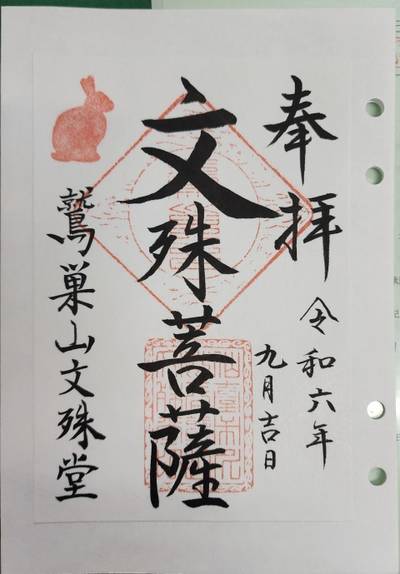 奉拝
令和六年
九月吉日
文殊菩薩
鷲巣山文殊堂